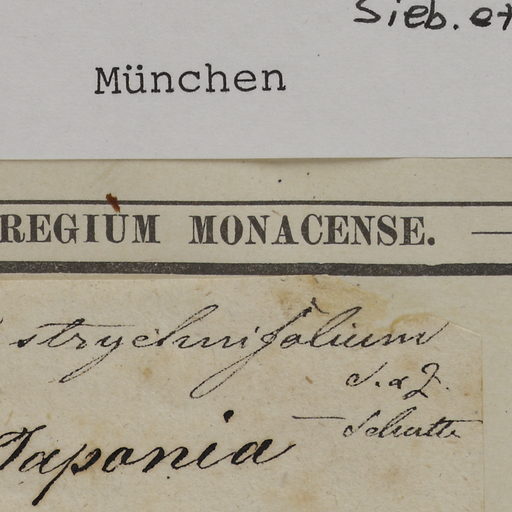 Sieb. et
München
REGIUM MONACENSE.
strychnifolium
S. & Z.
Japonia